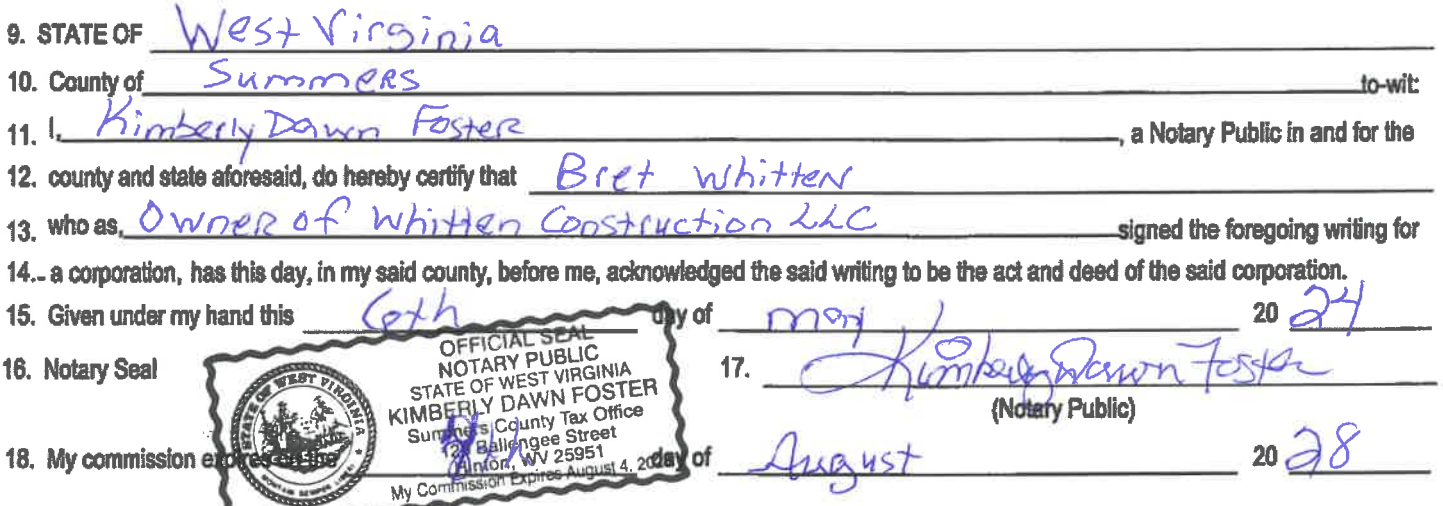 9. STATE OF West Virginia
10. County of Summers to-wit:
11. I, Kimberly Dawn Foster, a Notary Public in and for the
12. county and state aforesaid, do hereby certify that Bret Whitten
13. who as, Owner of Whitten Construction LLC signed the foregoing writing for
14. a corporation, has this day, in my said county, before me, acknowledged the said writing to be the act and deed of the said corporation.
15. Given under my hand this 6th day of may 20 24
16. Notary Seal
STATE OF WEST VIRGINIA
MONTANI SEMPER LIBERI
OFFICIAL SEAL
NOTARY PUBLIC
STATE OF WEST VIRGINIA
KIMBERLY DAWN FOSTER
Summers County Tax Office
Ballengee Street
Hinton, WV 25951
My Commission Expires August 4,
17. Kimberly Dawn Foster
(Notary Public)
18. My commission expires on the day of August 20 28